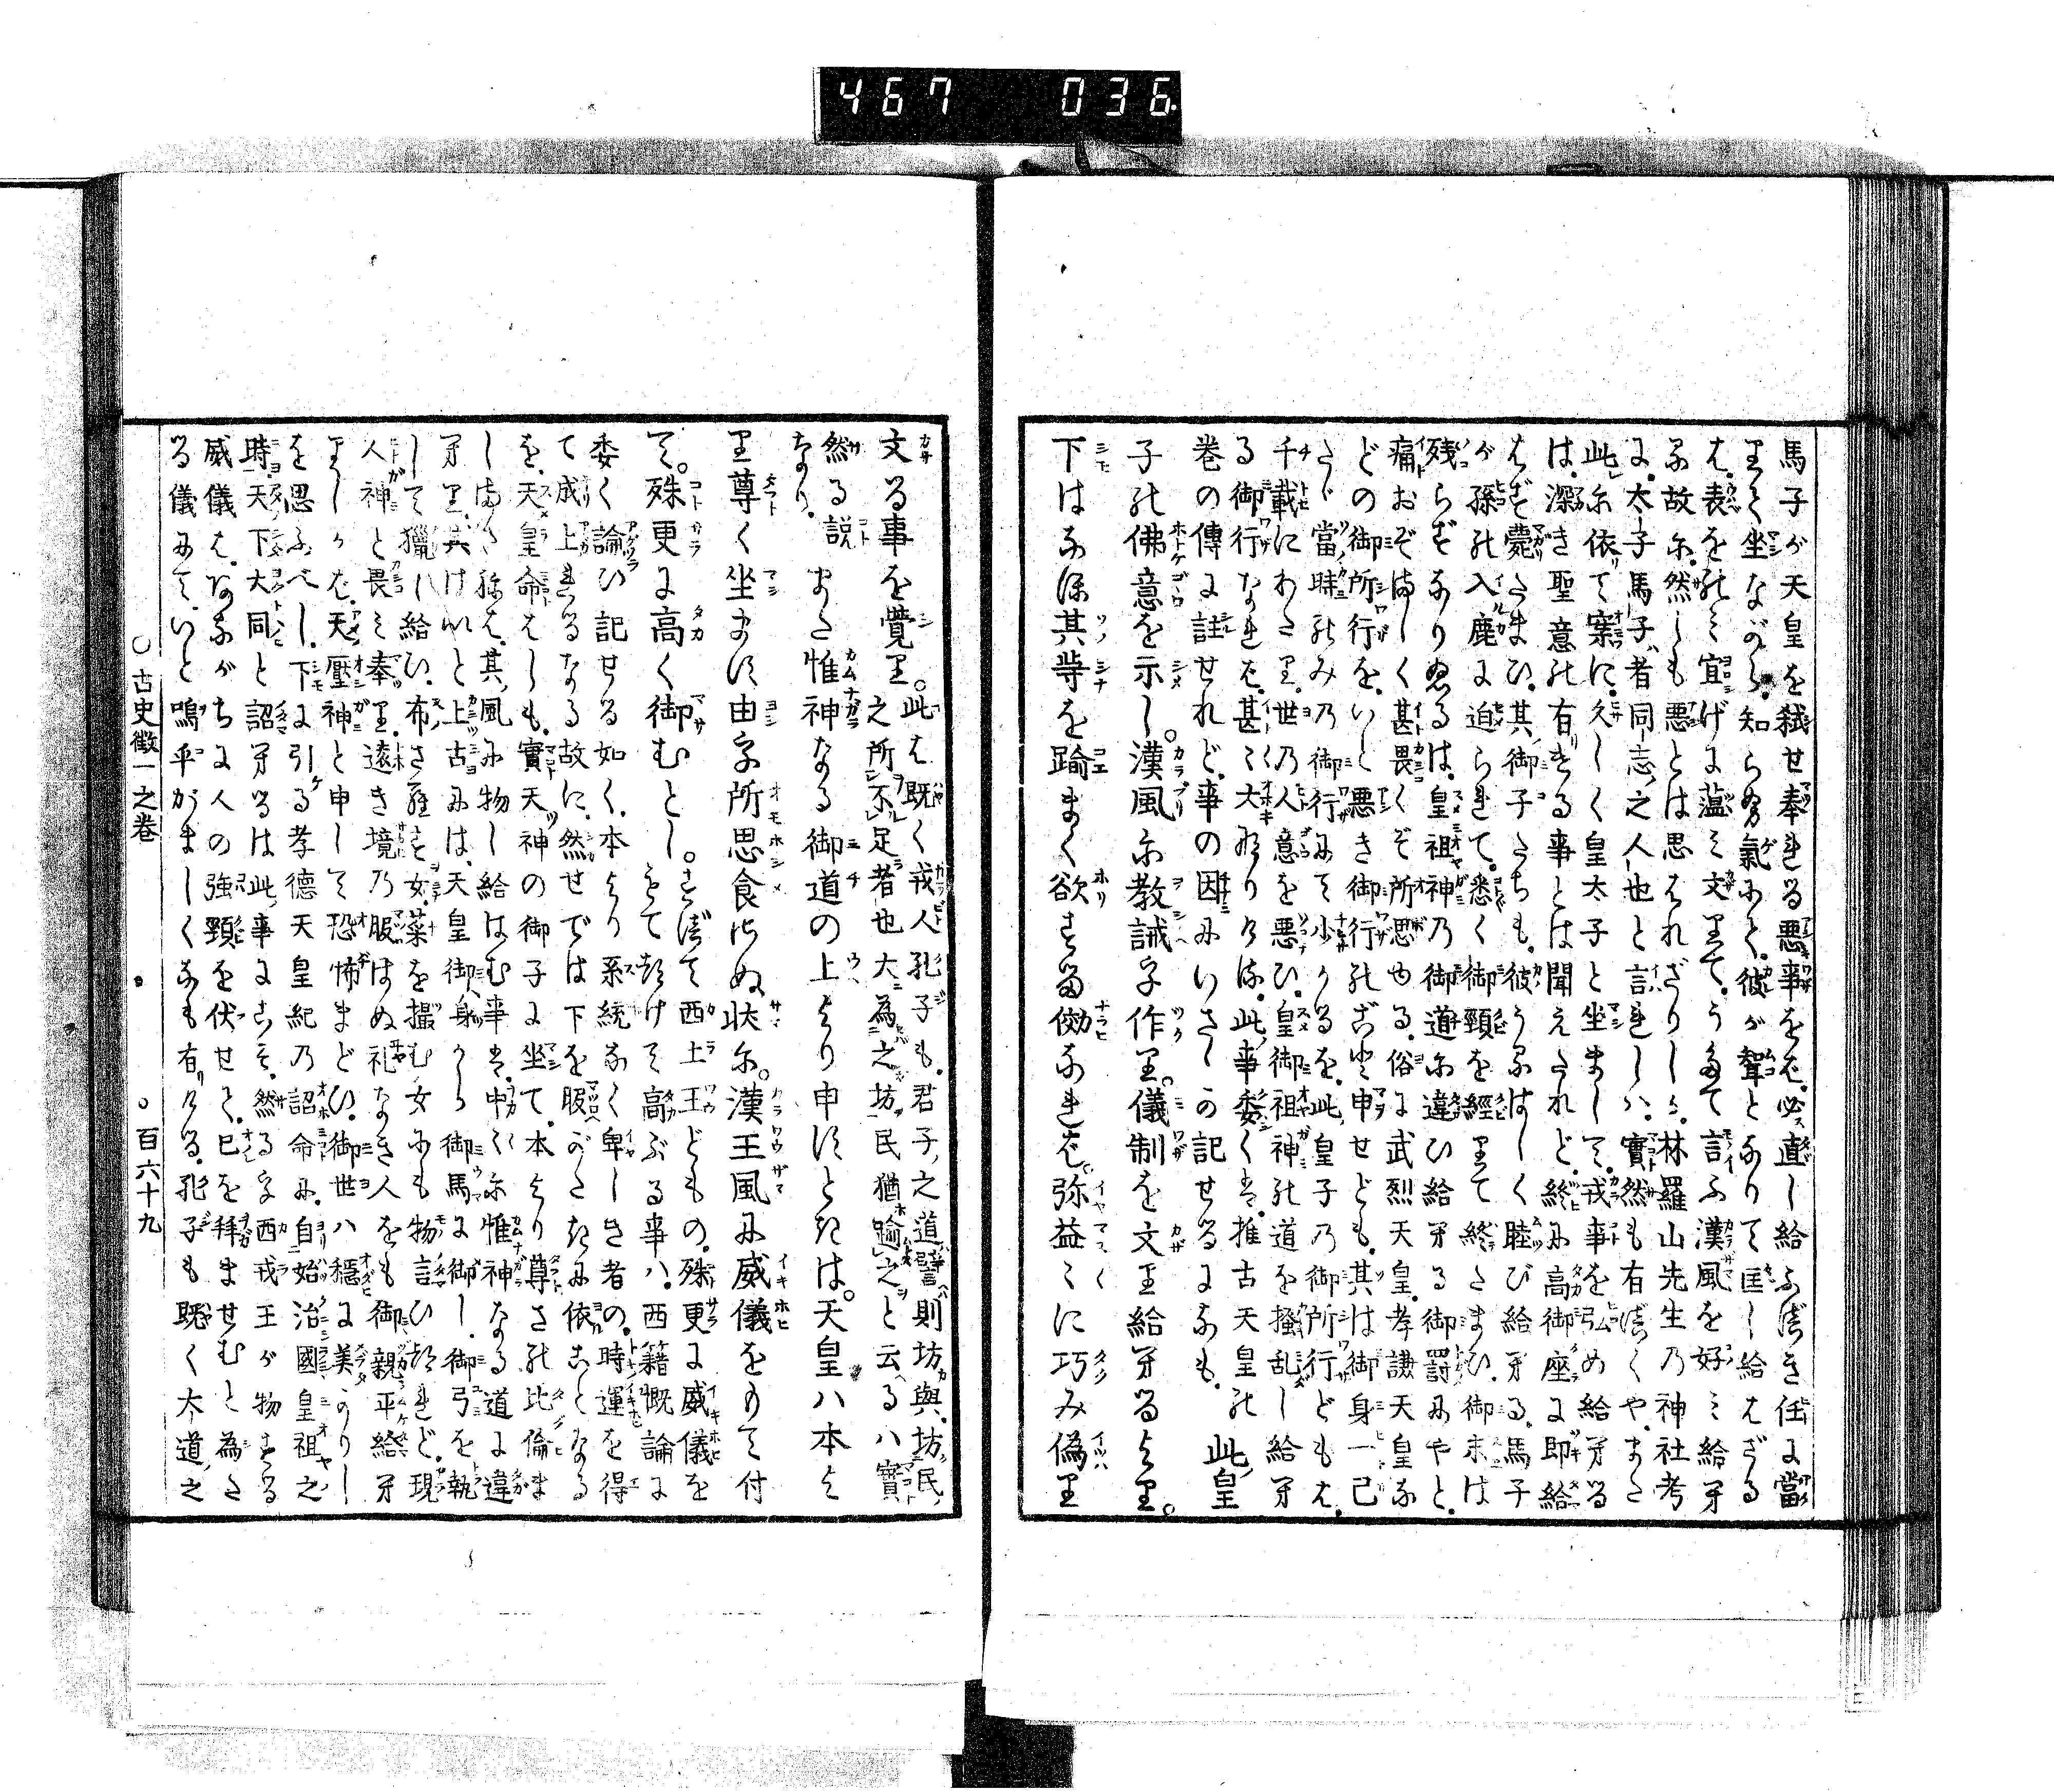 467 036
馬子が天皇を弑せ奉れる悪事をば、必直し給ふべき任に當
りて坐ながら、知らぬ氣にて、彼が聟となりて匡し給はざる
は、表をのみ宜げに薀み文りて、うたて言ふ漢風を好み給へ
る故に、然しも悪とは思はれざりしと、林羅山先生の神社考
に、太子馬子者同志之人也と言れしハ、實然も有べくや、また
此に依て案に、久しく皇太子と坐まして、戎事を弘め給へる
は、深き聖意の有ける事とは聞えたれど、終に高御座に即給
はず薨たまひ、其御子たちも、彼うるはしく睦び給へる、馬子
が孫の入鹿に迫られて、悉く御頸を經りて終たまひ、御末は
残らずなりぬるは、皇祖神の御道に違ひ給へる御罸にやと、
痛おぞましく甚畏くぞ所思ゆる、俗に武烈天皇、孝謙天皇な
どの御所行を、いと悪き御行のごと申せども、其は御身一己
たゞ當時のみの御行にて少かるを、此皇子の御所行どもは、
千載にわたり、世の人意を悪ひ、皇御祖神の道を掻乱し給へ
る御行なれば、甚く大なりけり、此事委くは、推古天皇の
巻の傳に註せれど、事の因にいさゝか記せるになも、此皇
子の佛意を示し。漢風に教誡を作り。儀制を文り給へるより。
下はなほ其等を踰まく欲する俲なれば。弥益々に巧み偽り
文る事を覺り。此は既く戎人孔子も、君子之道譬則坊與、坊民
之所不足者也、大為之坊、民猶踰之と云るハ實
然る説
なり、 また惟神なる御道の上より申すときは。天皇ハ本よ
り尊く坐ます由を所思食さぬ状に。漢王風に威儀をもて付
て。殊更に高く御むとし。すべて西土王どもの、殊更に威儀を
もてつけて高ぶる事ハ、西籍概論に
委く論ひ記せる如く、本より系統なく卑しき者の、時運を得
て成上れるなる故に、然せでは下を服がたきに依ことなる
を、天皇命はしも、實天神の御子に坐て、本より尊さの比倫ま
しまさねば、其風に物し給はむ事は、中々に惟神なる道に違
へり、其はいと上古には、天皇御身から御馬に御し、御弓を執
して獵ハし給ひ、布さらす女、菜を撮む女にも物言ひけれど、現
人神と畏み奉り、遠き境の服はぬ礼なき人をも御親平給へ
りしかば、天壓神と申して恐怖まどひ、御世ハ穏に美かりし
を思ふべし、下に引る孝德天皇紀の詔命に、自始治國皇祖之
時、天下大同と詔へるは此事にこそ、然るを西戎王が物する
威儀は、おのがちに人の強頸を伏せて、己を拜ませむと為た
る儀にて、いと嗚乎がましくなも有ける、孔子も既く大道之
○古史徴一之巻
○百六十九